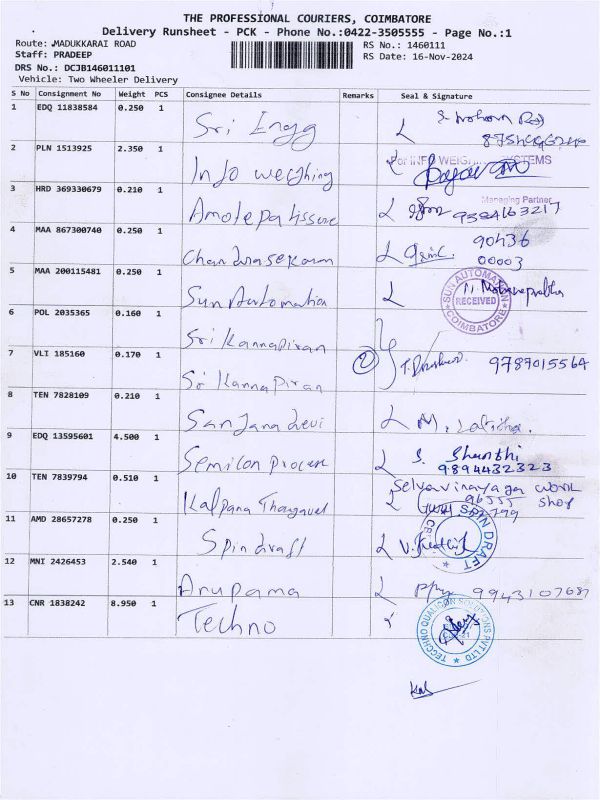 THE PROFESSIONAL COURIERS, COIMBATORE
Delivery Runsheet - PCK - Phone No.:0422-3505555 - Page No.:1
Route: MADUKKARAI ROAD
RS No.: 1460111
Staff: PRADEEP
RS Date: 16-Nov-2024
DRS No.: DCJB146011101
Vehicle: Two Wheeler Delivery
S No Consignment No Weight PCS Consignee Details Remarks Seal & Signature
1 EDQ 11838584 0.250 1 Sri Engg
2 PLN 1513925 2.350 1 Info weighing For INFO WEIGHING SYSTEMS
Managing Partner
3 HRD 369330679 0.210 1 9384163217
4 MAA 867300740 0.250 1 Chandrasekaran 90436
00003
5 MAA 200115481 0.250 1 Sun Automation SUN AUTOMATION RECEIVED COIMBATORE
6 POL 2035365 0.160 1 Sri Kannapiran
7 VLI 185160 0.170 1 Sri Kannapiran 2 9787015564
8 TEN 7828109 0.210 1 Sanjana devi M. Lalitha.
9 EDQ 13595601 4.500 1 Semicon process S. Shanthi
9894432323
10 TEN 7839794 0.510 1 Kalpana Thangavel Selvavinayaga work
96555 shop
11 AMD 28657278 0.250 1 Spindraft SPIN DRAFT
12 MNI 2426453 2.540 1 Anupama 9943107687
13 CNR 1838242 8.950 1 Techno TECCHNO QUALICON SOLUTIONS PVT LTD